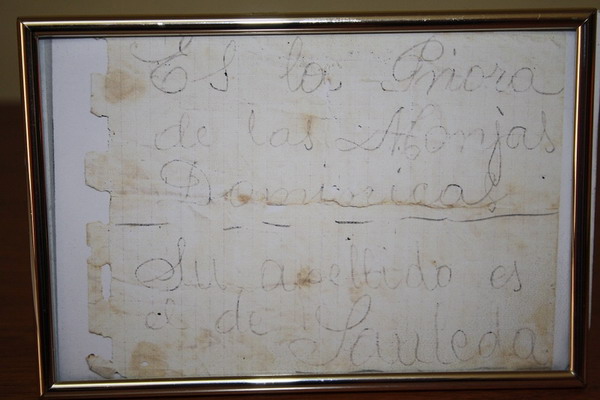 Es la Priora
de las Monjas
Dominicas
Su apellido es
el de Sauleda